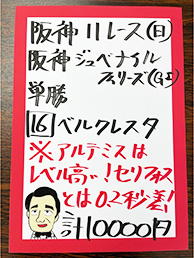 阪神11レース(日)
阪神ジュベナイル
フィリーズ(GI)
単勝
16 ベルクレスタ
※アルテミスは
レベル高い!セリフォス
とは0.2秒差!
計10000円